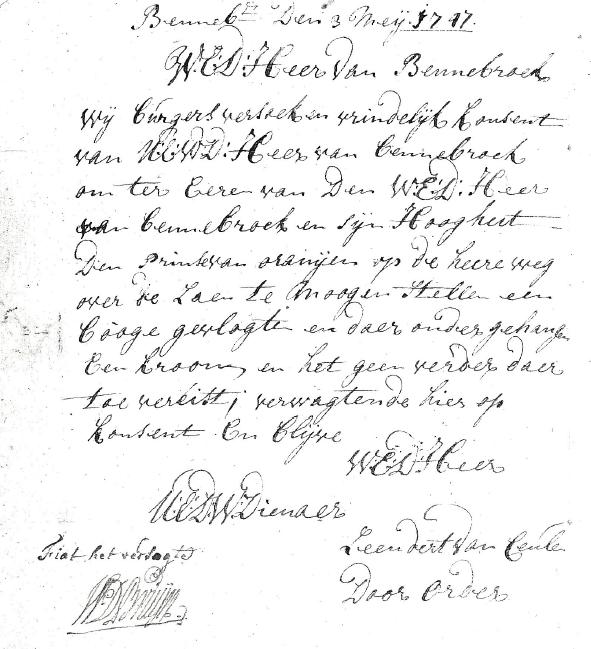 Benneb: Den 3 Meij 1747.
W:E:D: Heer van Bennebroek
wij burgers versoeken vrindelijk konsent
van U:E:W:D: Heer van bennebroek
om ter Eeren van Den W:E:D: Heer
van bennebroek en sijn Hoogheit
Den Prins van oranjen op de heere weg
over de Laen te moogen stellen een
booge gevlogten en daer onder gehangen
Een kroon, en het geen verder daer
toe vereist; verwagtende hier op
konsent En blijve
W:E:D: Heer
U:E:D:W: Dienaer
Leendert van
Fiat het versogte
Door order